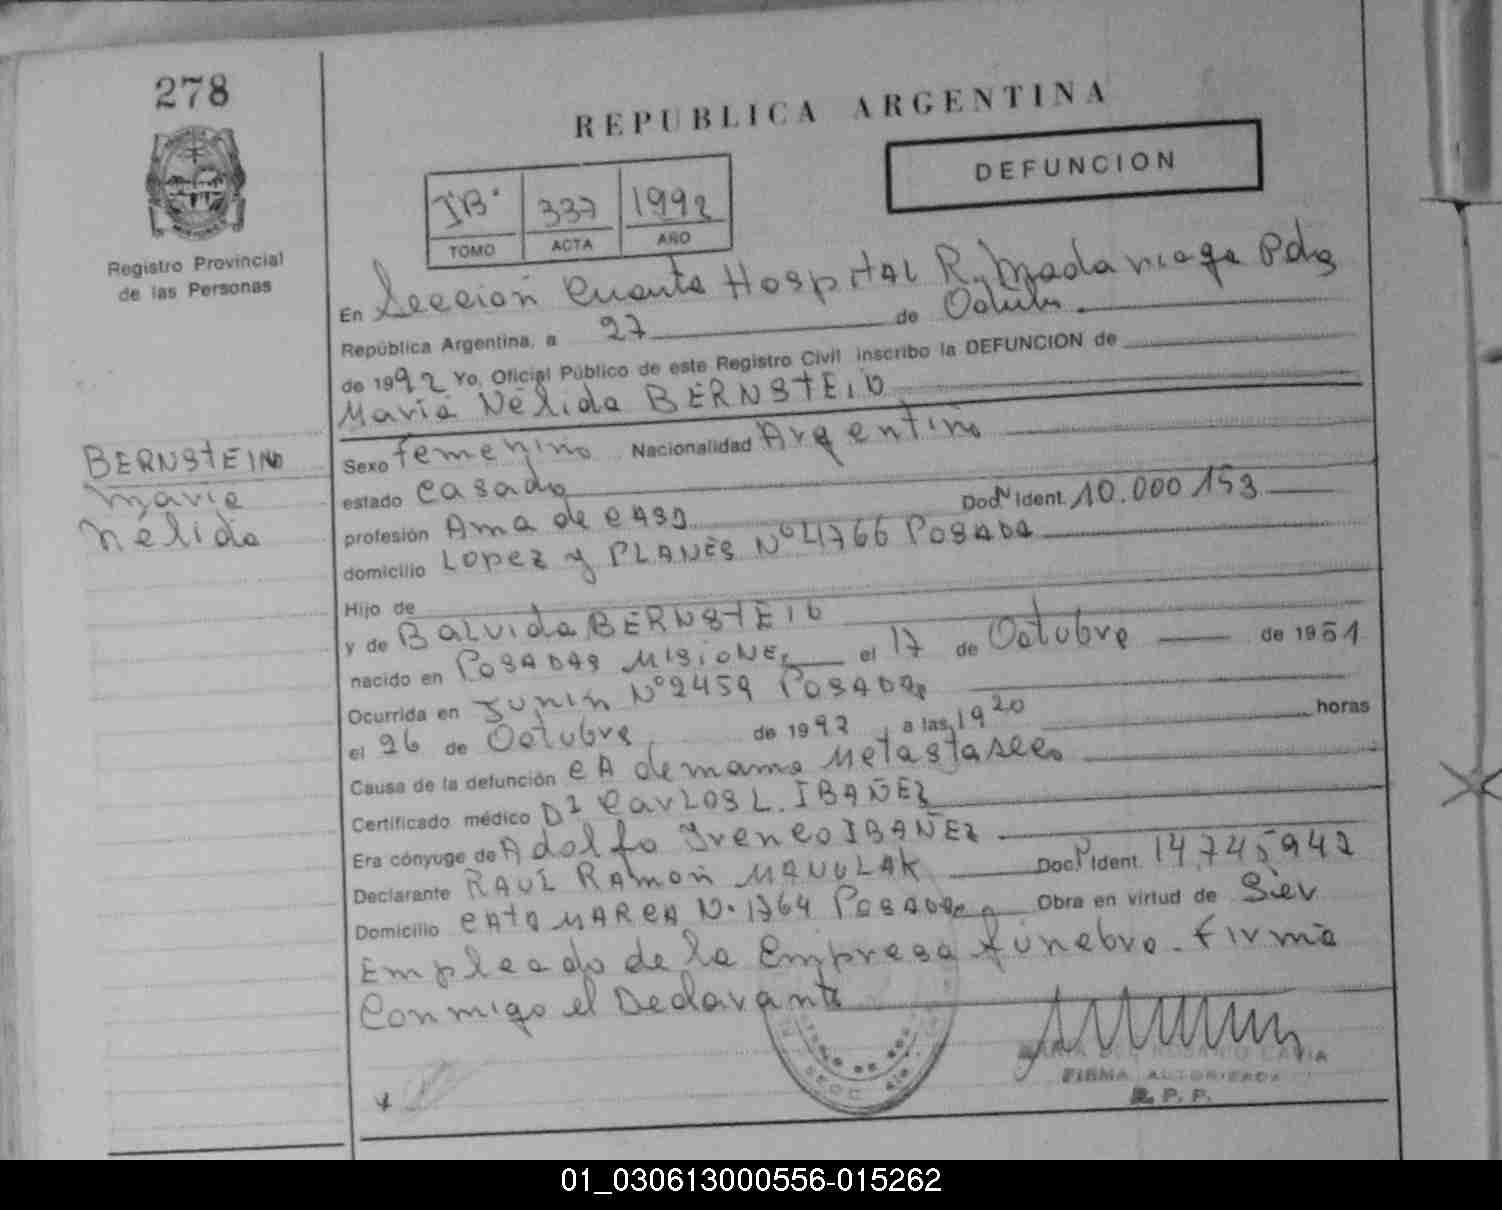 278
REPUBLICA ARGENTINA
DEFUNCION
IB. 337 1992
TOMO ACTA AÑO
Registro Provincial
de las Personas
En Sección Cuarta Hospital R. Madariaga Pdas
República Argentina, a 27 de Octubre
de 1992 Yo, Oficial Público de este Registro Civil inscribo la DEFUNCION de
María Nélida BERNSTEIN
BERNSTEIN
María
Nélida
Sexo femenino Nacionalidad Argentino
estado casado
profesión Ama de casa Doc. N Ident. 10.000 153
domicilio Lopez y PLANES Nº 4766 POSADA
Hijo de
y de Balvida BERNSTEIN
nacido en POSADAS MISIONES el 17 de Octubre de 1951
Ocurrida en Junín Nº 2459 POSADAS
el 26 de Octubre de 1992, a las 19 20 horas
Causa de la defunción CA de mama Metastasee
Certificado médico Dr Carlos L. IBAÑEZ
Era cónyuge de Adolfo Ireneo IBAÑEZ
Declarante RAUL RAMON MANULAK Doc. Ident. 14.745942
Domicilio CATAMARCA N. 1764 POSADAS Obra en virtud de Ser
Empleado de la Empresa fúnebre. Firma
Conmigo el Declarante
FIRMA AUTORIZADA
R. P. P.
01_030613000556-015262